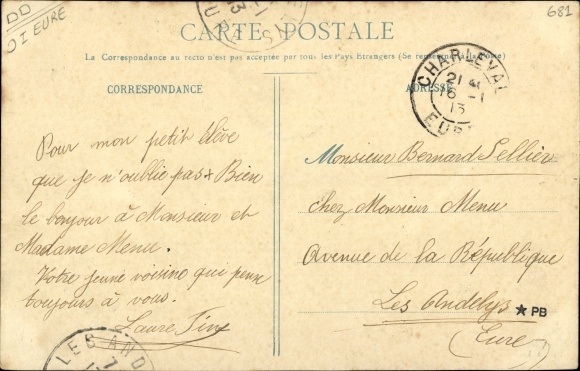 DD
OI EURE
681
CARTE POSTALE
La Correspondance au recto n'est pas acceptée par tous les Pays Etrangers (Se renseigner à la Poste)
CORRESPONDANCE
ADRESSE
CHARLEVAL
21
6 -1
13
EURE
Pour mon petit élève
que je n'oublie pas + Bien
le bonjour à Monsieur et
Madame Menu.
Votre jeune voisine qui pense
toujours à vous.
Laure
Monsieur Bernard Pellier
chez Monsieur Menu
Avenue de la République
Les Andelys
(Eure)
★ PB
LES AND